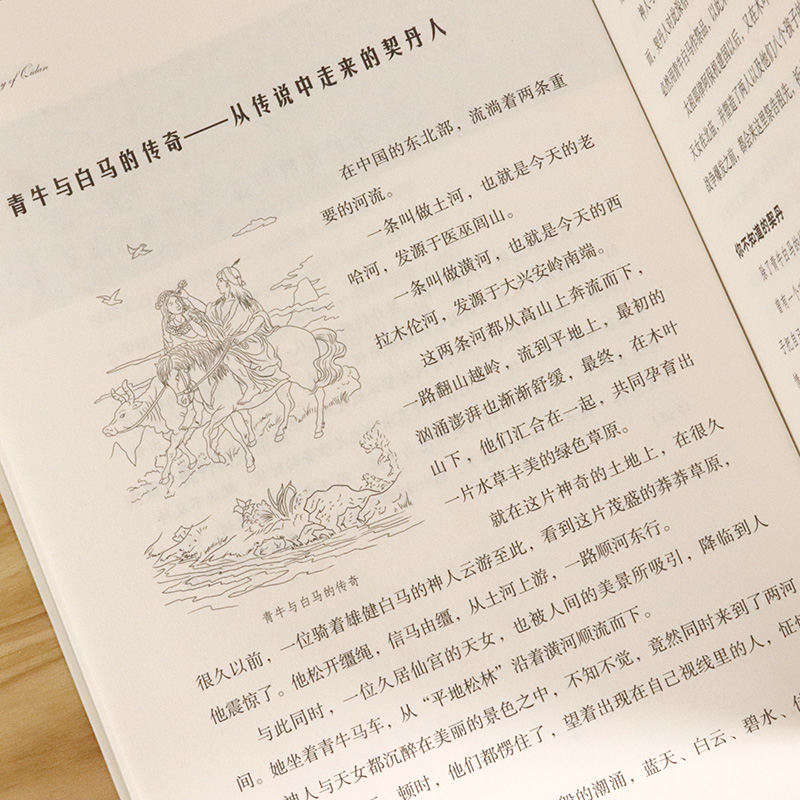 y of Qidan
青牛与白马的传奇——从传说中走来的契丹人
在中国的东北部，流淌着两条重
要的河流。
一条叫做土河，也就是今天的老
哈河，发源于医巫闾山。
一条叫做潢河，也就是今天的西
拉木伦河，发源于大兴安岭南端。
这两条河都从高山上奔流而下，
一路翻山越岭，流到平地上，最初的
汹涌澎湃也渐渐舒缓，最终，在木叶
山下，他们汇合在一起，共同孕育出
一片水草丰美的绿色草原。
就在这片神奇的土地上，在很久
很久以前，一位骑着雄健白马的神人云游至此，看到这片茂盛的莽莽草原，
他震惊了。他松开缰绳，信马由缰，从土河上游，一路顺河东行。
与此同时，一位久居仙宫的天女，也被人间的美景所吸引，降临到人
间。她坐着青牛马车，从“平地松林”沿着潢河顺流而下。
神人与天女都沉醉在美丽的景色之中，不知不觉，竟然同时来到了两河
顿时，他们都愣住了，望着出现在自己视线里的人，怔
的潮涌，蓝天、白云、碧水、
青牛与白马的传奇
太祖耶律阿保机建国以后，又在木叶
天女在北庙，并塑造了两人以及他们八个孩子的
战争爆发之前，都会来这里祭告祖先，
你不知道的契丹
除了青牛白马的
曾有一个
子把自